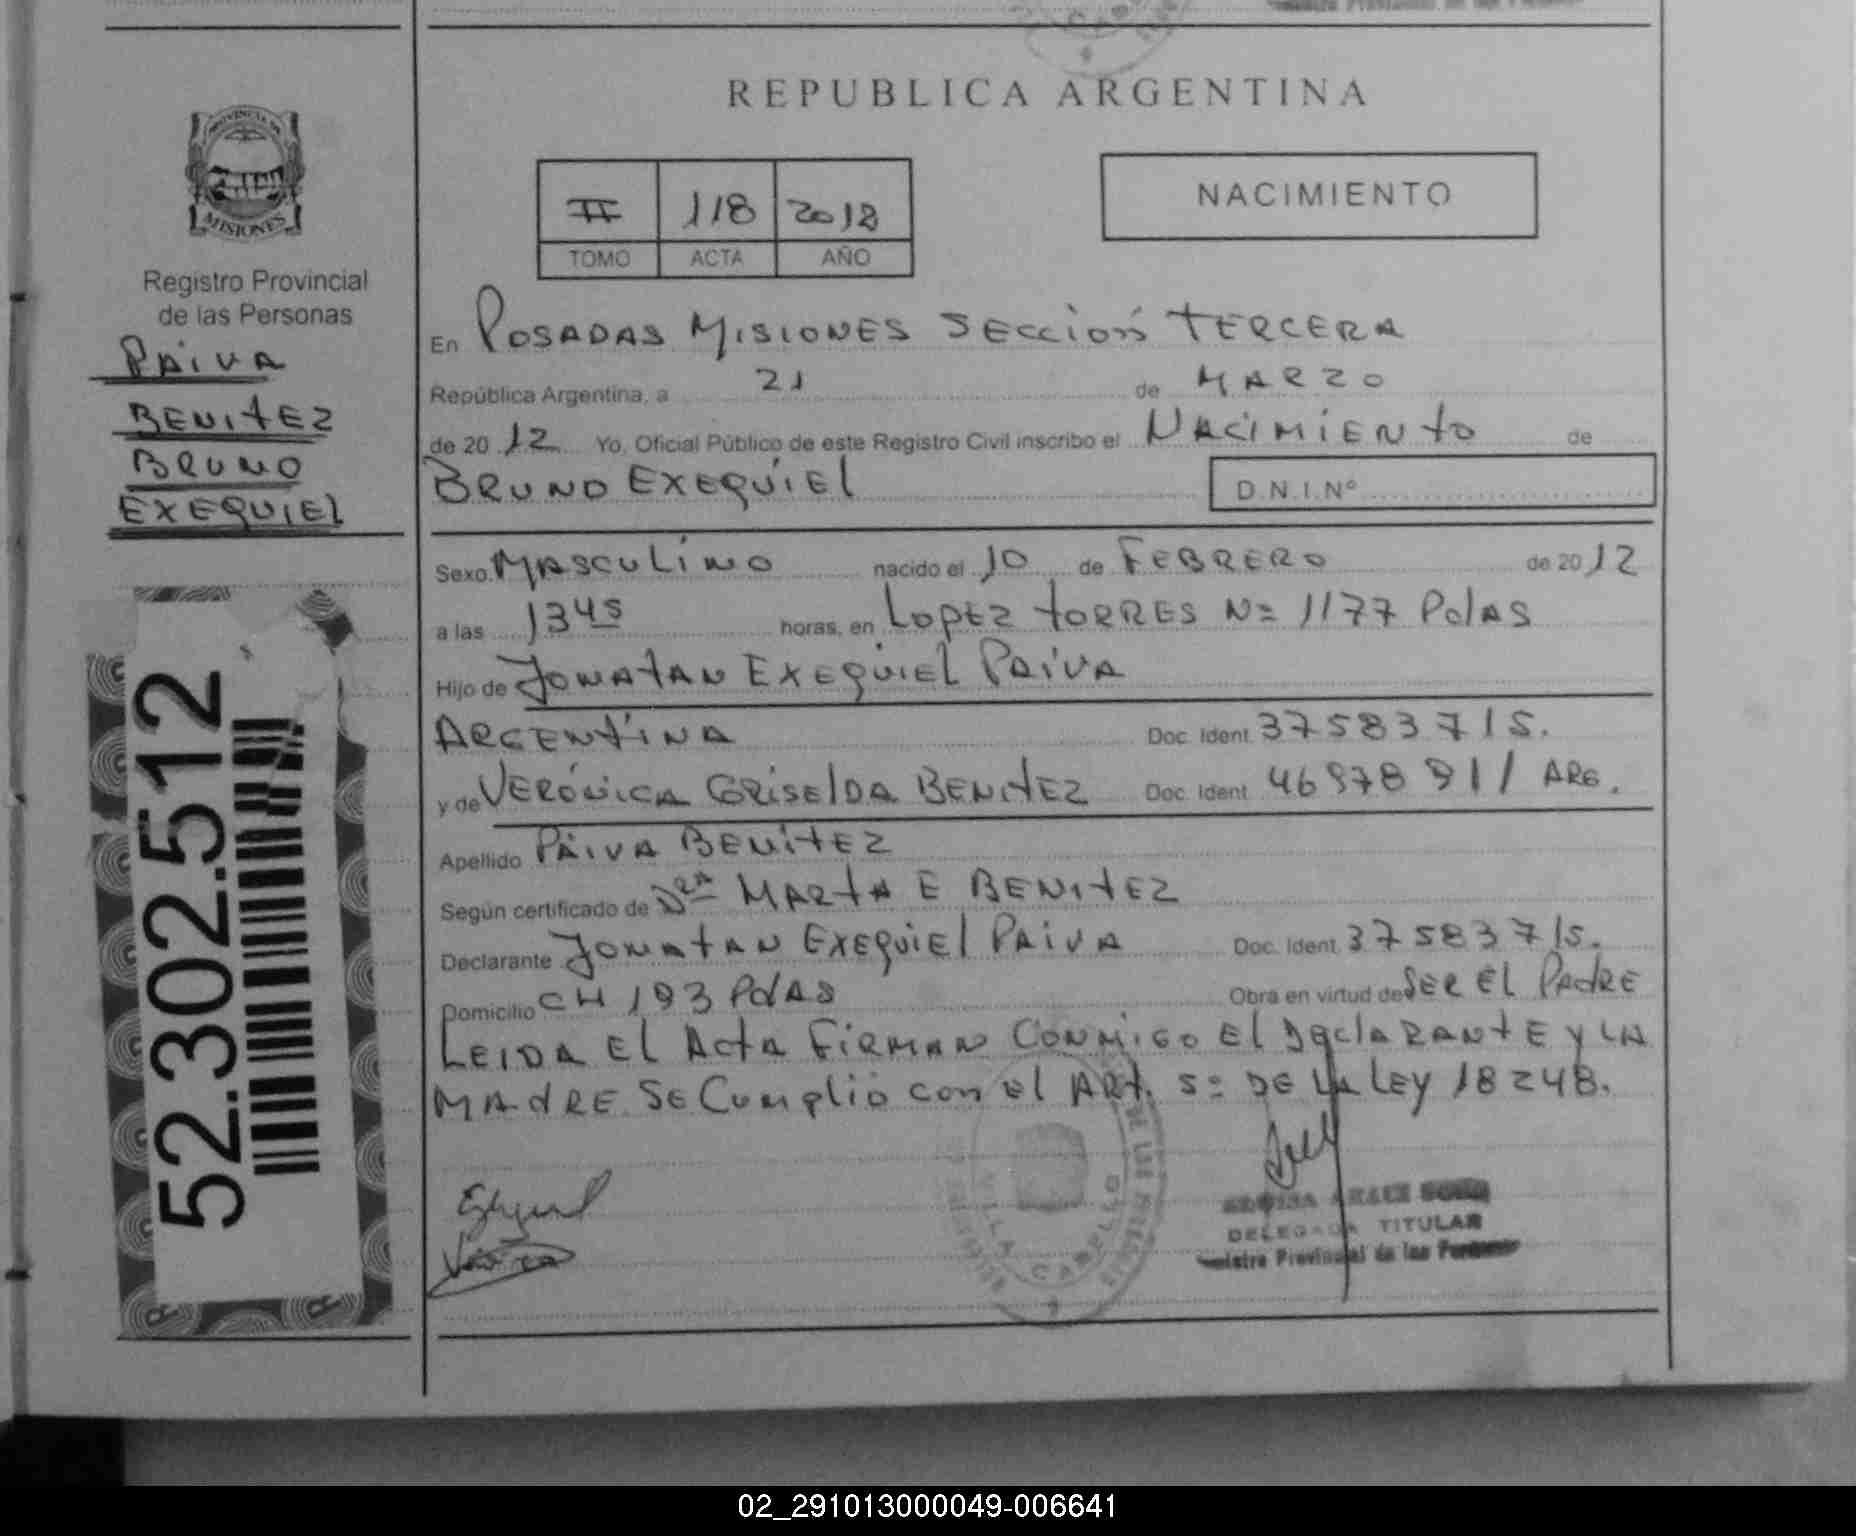 REPUBLICA ARGENTINA
PROVINCIA DE
MISIONES
Registro Provincial
de las Personas
PAIVA
BENITEZ
BRUNO
EXEQUIEL
52.302.512
II 118 2012
TOMO ACTA AÑO
NACIMIENTO
En POSADAS MISIONES SECCIÓN TERCERA
República Argentina, a 21 de MARZO
de 20 12 Yo, Oficial Público de este Registro Civil inscribo el NACIMIENTO de
BRUNO EXEQUIEL D.N.I.Nº
Sexo MASCULINO nacido el 10 de FEBRERO de 20 12
a las 13 45 horas, en LOPEZ TORRES Nº 1177 PdAS
Hijo de JONATAN EXEQUIEL PAIVA
ARGENTINA Doc. Ident. 37583715.
y de VERÓNICA GRISELDA BENITEZ Doc. Ident. ARG.
Apellido PAIVA BENITEZ
Según certificado de DRA MARTA E BENITEZ
Declarante JONATAN EXEQUIEL PAIVA Doc. Ident. 37583715.
Domicilio CH 193 PdAS Obra en virtud de SER EL PADRE
LEIDA EL ACTA FIRMAN CONMIGO EL DECLARANTE Y LA
MADRE SE CUMPLIÓ CON EL ART. 5º DE LA LEY 18248.
VILLA CABELLO
DELEGADA TITULAR
Registro Provincial de las Personas
02_291013000049-006641